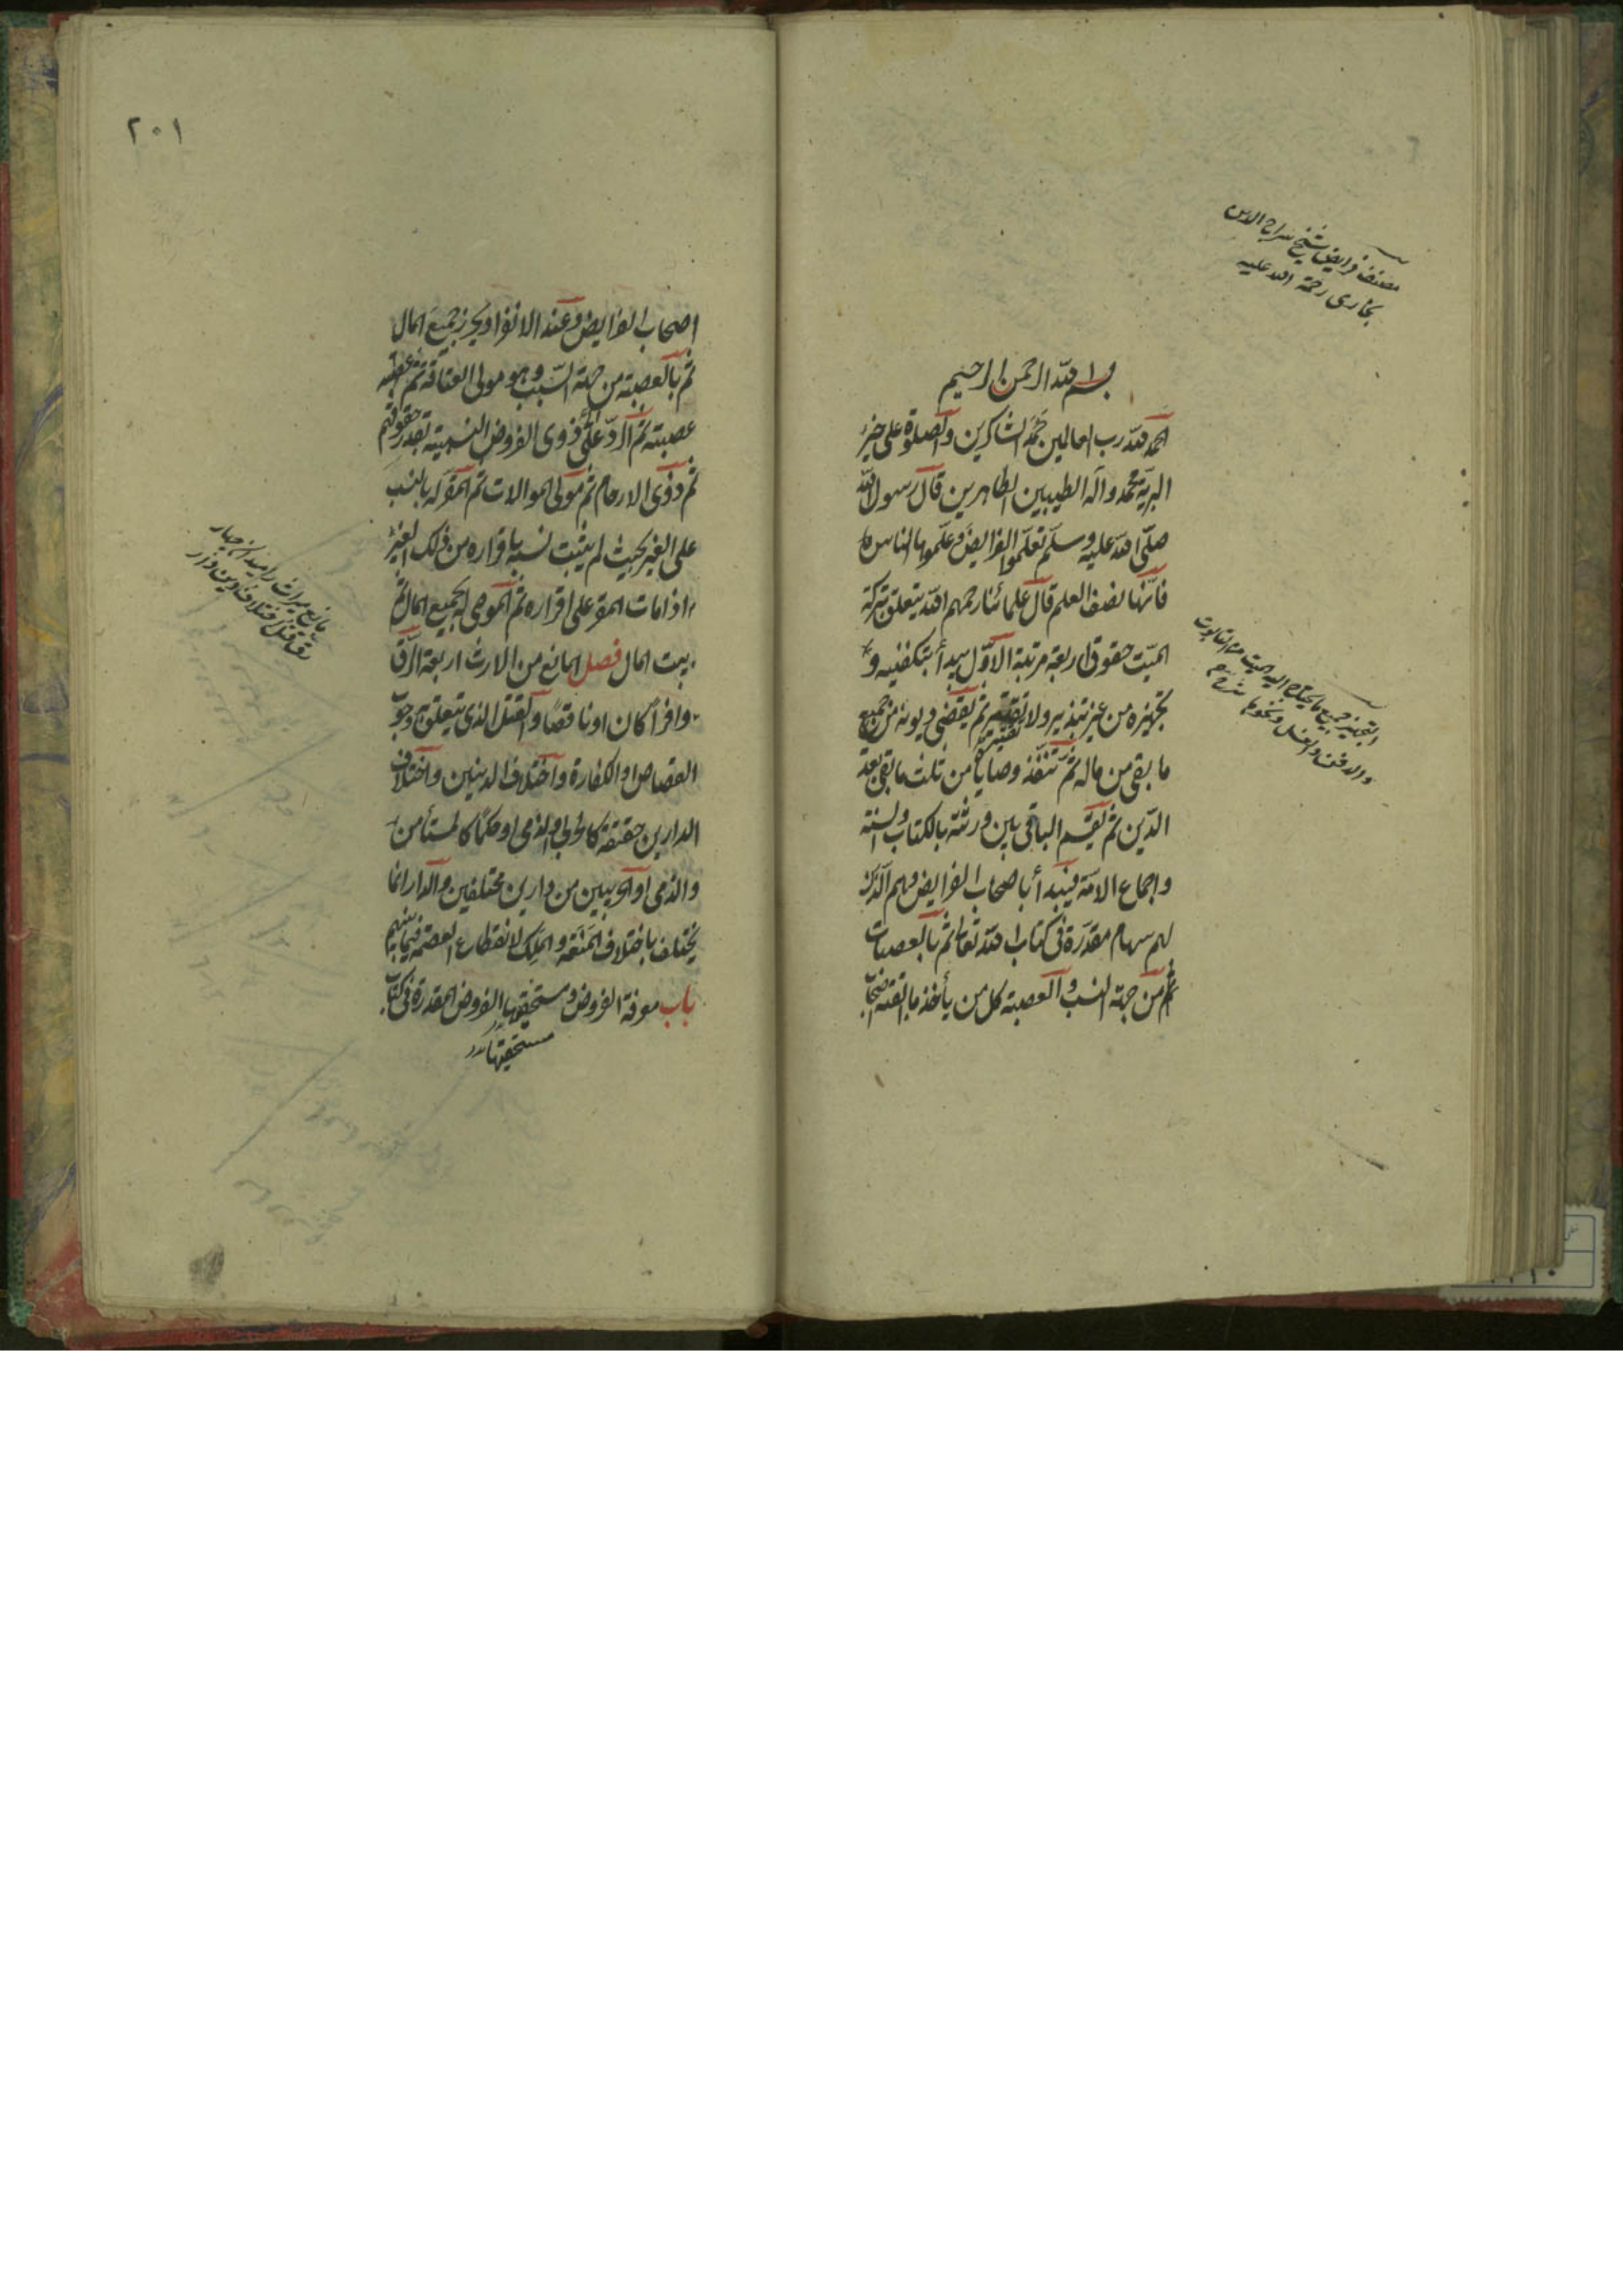 مصنف فرايض شيخ سراج الدين
بخارى رحمة الله عليه
بسم الله الرحمن الرحيم
الحمد لله رب العالمين حمد الشاكرين والصلوة على خير
البرية محمد وآله الطيبين الطاهرين قال رسول الله
صلى الله عليه وسلم تعلموا الفرايض وعلموها الناس
فانها نصف العلم قال علمائنا رحمهم الله يتعلق بتركة
الميت حقوق اربعة مرتبة الاول يبدأ بتكفينه و
تجهيزه من غير تبذير ولا تقتير ثم يقضى ديونه من جميع
ما بقى من ماله ثم تنفذ وصاياه من ثلث ما بقى بعد
الدين ثم يقسم الباقى بين ورثته بالكتاب والسنة
واجماع الامة فيبدأ باصحاب الفرايض وهم الذين
لهم سهام مقدرة فى كتاب الله تعالى ثم بالعصبات
من جهة النسب والعصبة كل من يأخذ ما ابقته اصحاب
التجهيز جميع ما يحتاج اليه الميت حتى التابوت
والدفن والغسل ونحوها
٢٠١
اصحاب الفرايض وعند الانفراد يحرز جميع المال
ثم بالعصبة من جهة السبب وهو مولى العتاقة ثم
عصبته ثم الرد على ذوى الفروض النسبية بقدر حقوقهم
ثم ذوى الارحام ثم مولى الموالات ثم المقر له بالنسب
على الغير بحيث لم يثبت نسبه باقراره من ذلك الغير
اذا مات المقر على اقراره ثم الموصى له بجميع المال ثم
بيت المال فصل المانع من الارث اربعة الرق
وافرا كان او ناقصا والقتل الذى يتعلق به وجوب
القصاص او الكفارة واختلاف الدينين واختلاف
الدارين حقيقة كالحربى والذمى او حكما كالمستأمن
والذمى او الحربيين من دارين مختلفين والدار انما
يختلف باختلاف المنعة والملك لانقطاع العصمة فيما بينهم
باب معرفة الفروض ومستحقيها الفروض المقدرة فى كتاب
مستحقيها
مانع ميراث را ميدان چهار
رق قتل اختلاف دين ودار